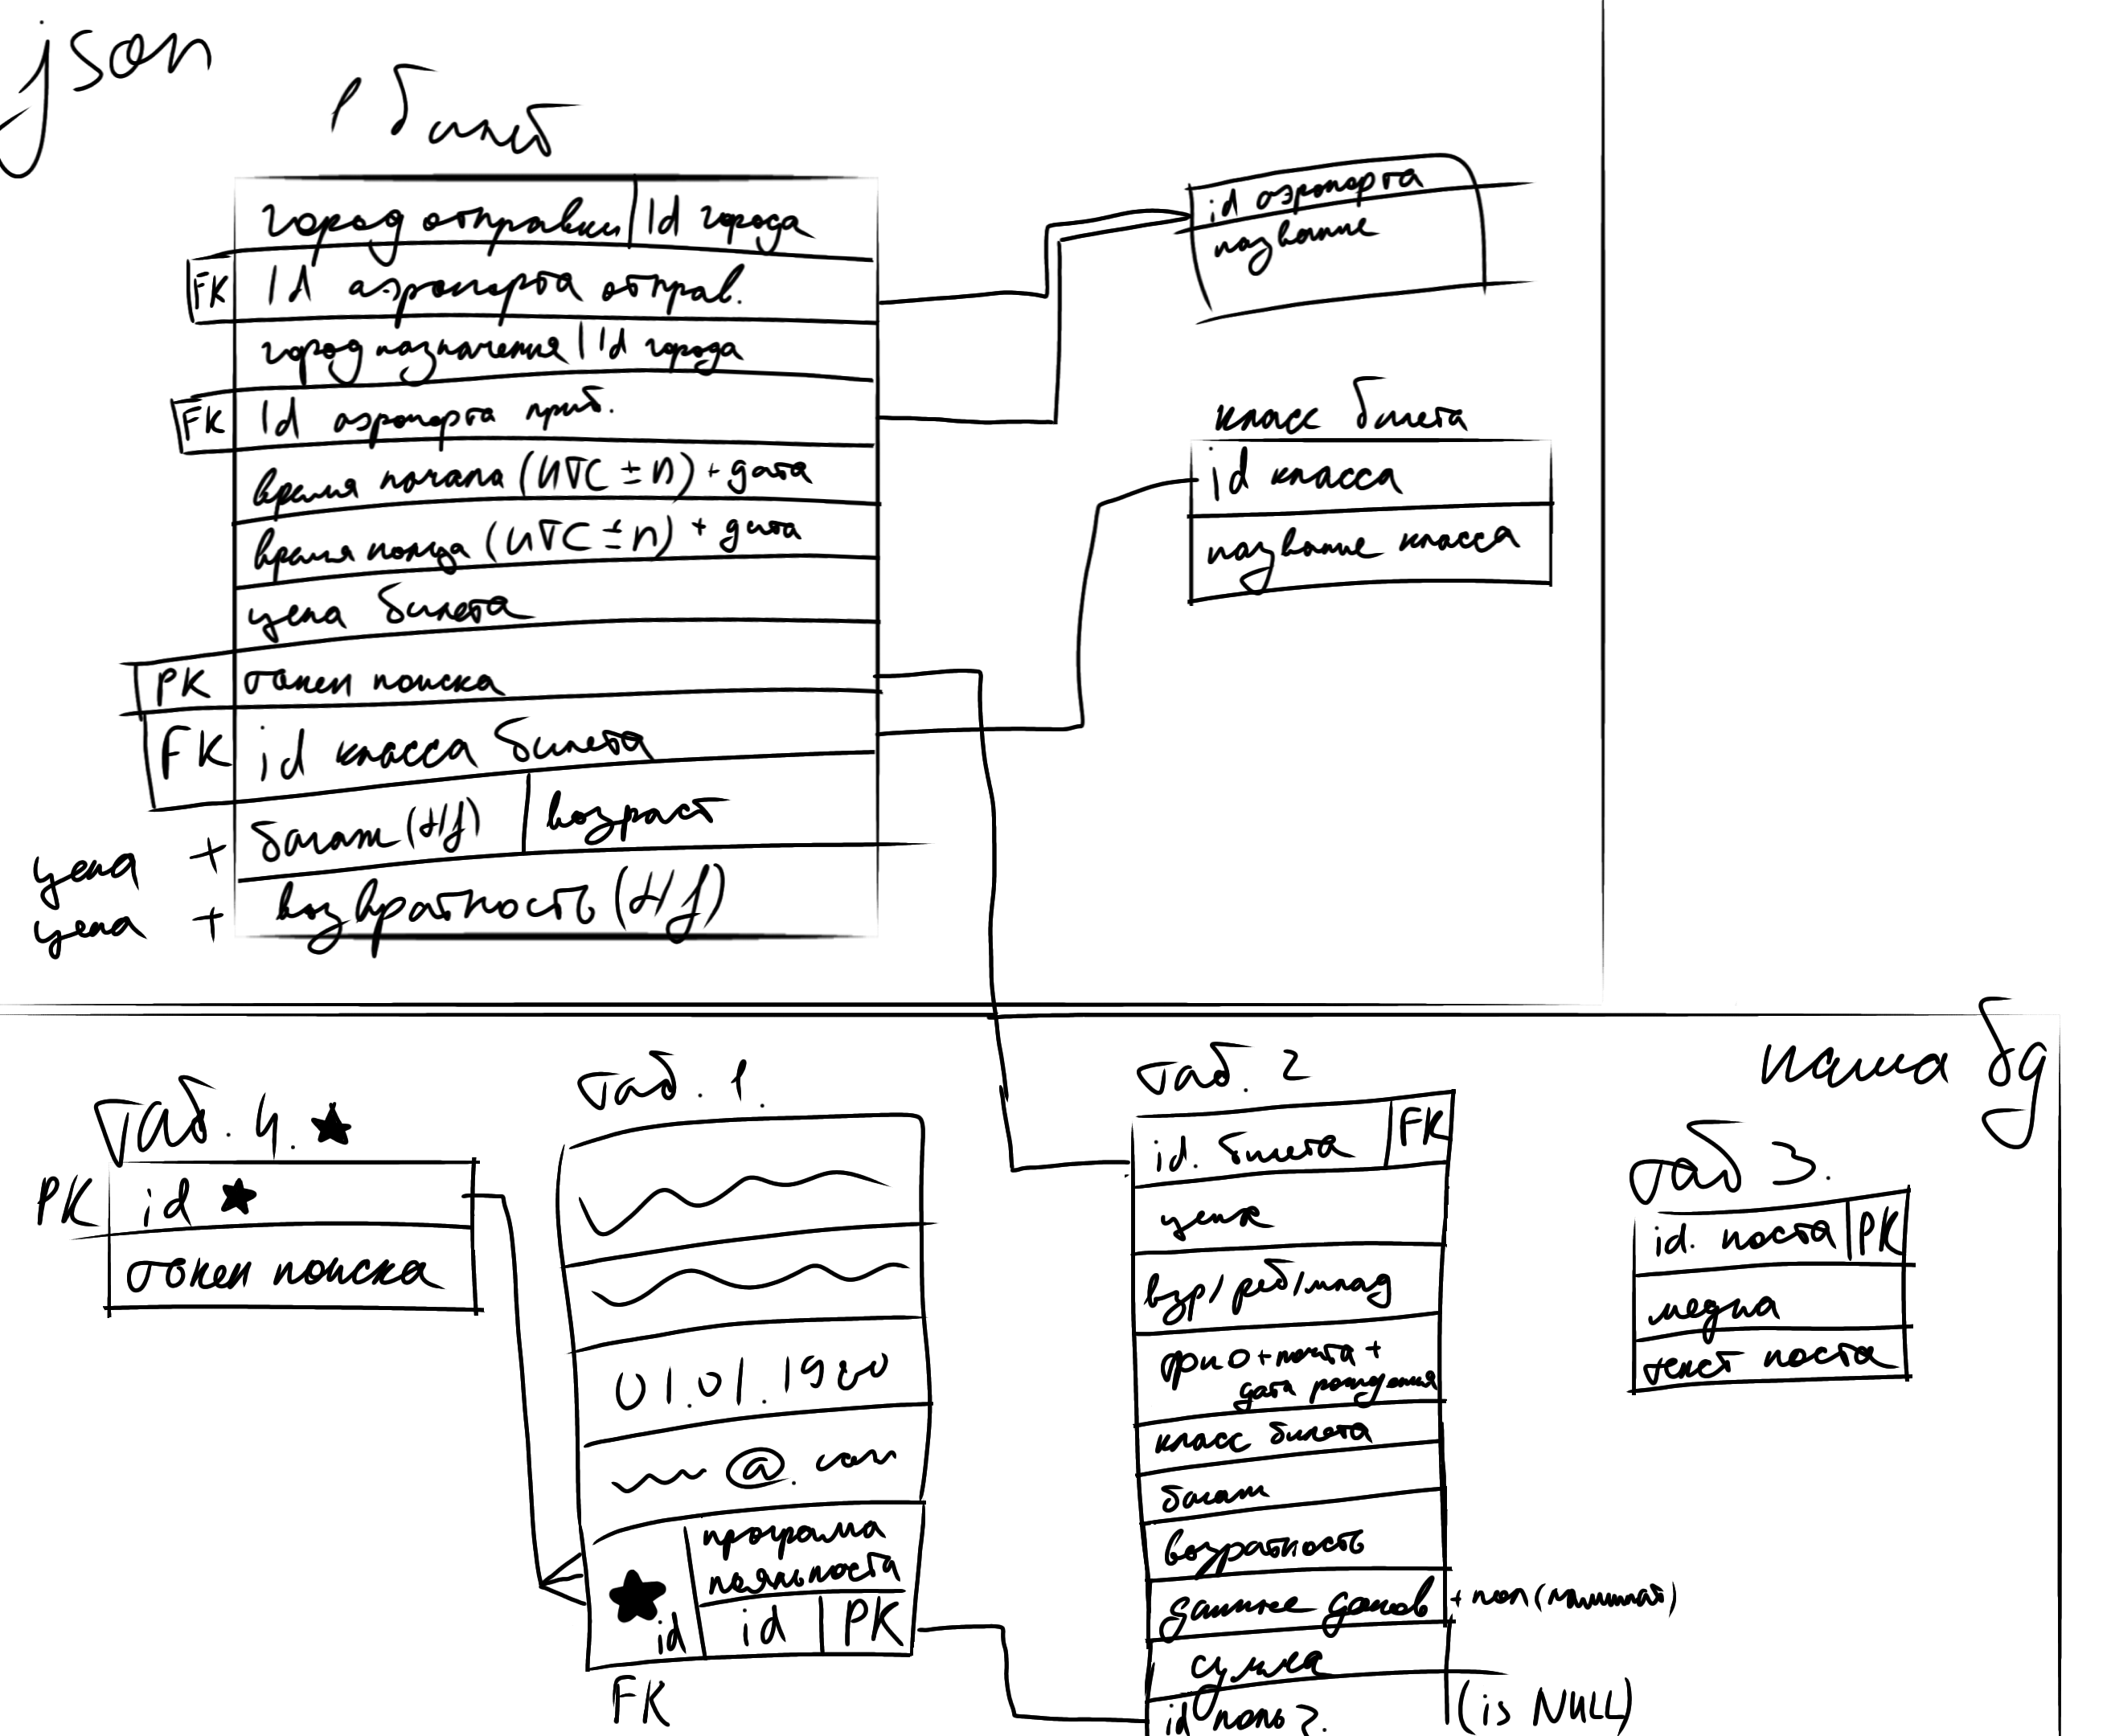 json
1 билет
город отправки | Id города
FK Id аэропорта отправ.
город назначения | Id города
FK Id аэропорта приб.
время начала (UTC ± n) + дата
время конца (UTC ± n) + дата
цена билета
PK токен поиска
FK id класса билета
цена + багаж (t/f) | возраст
цена + возвратность (t/f)
id аэропорта
название
класс билета
id класса
название класса
наша бд
Таб. 4. ★
PK id ★
токен поиска
таб. 1.
01.01.1980
@.com
программа
лояльности
★ id id PK
FK
таб. 2
id. билета FK
цена
взр/реб/млад
фио+почта+
дата рождения
класс билета
багаж
возратность
данные доков + пол
сумка
id польз. (is NULL)
таб 3.
id. поста PK
медиа
текст поста